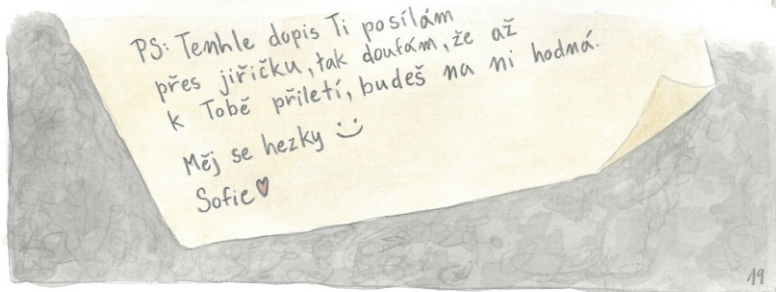 PS: Tenhle dopis Ti posílám
přes jiřičku, tak doufám, že až
k Tobě přiletí, budeš na ni hodná.
Měj se hezky
Sofie
19